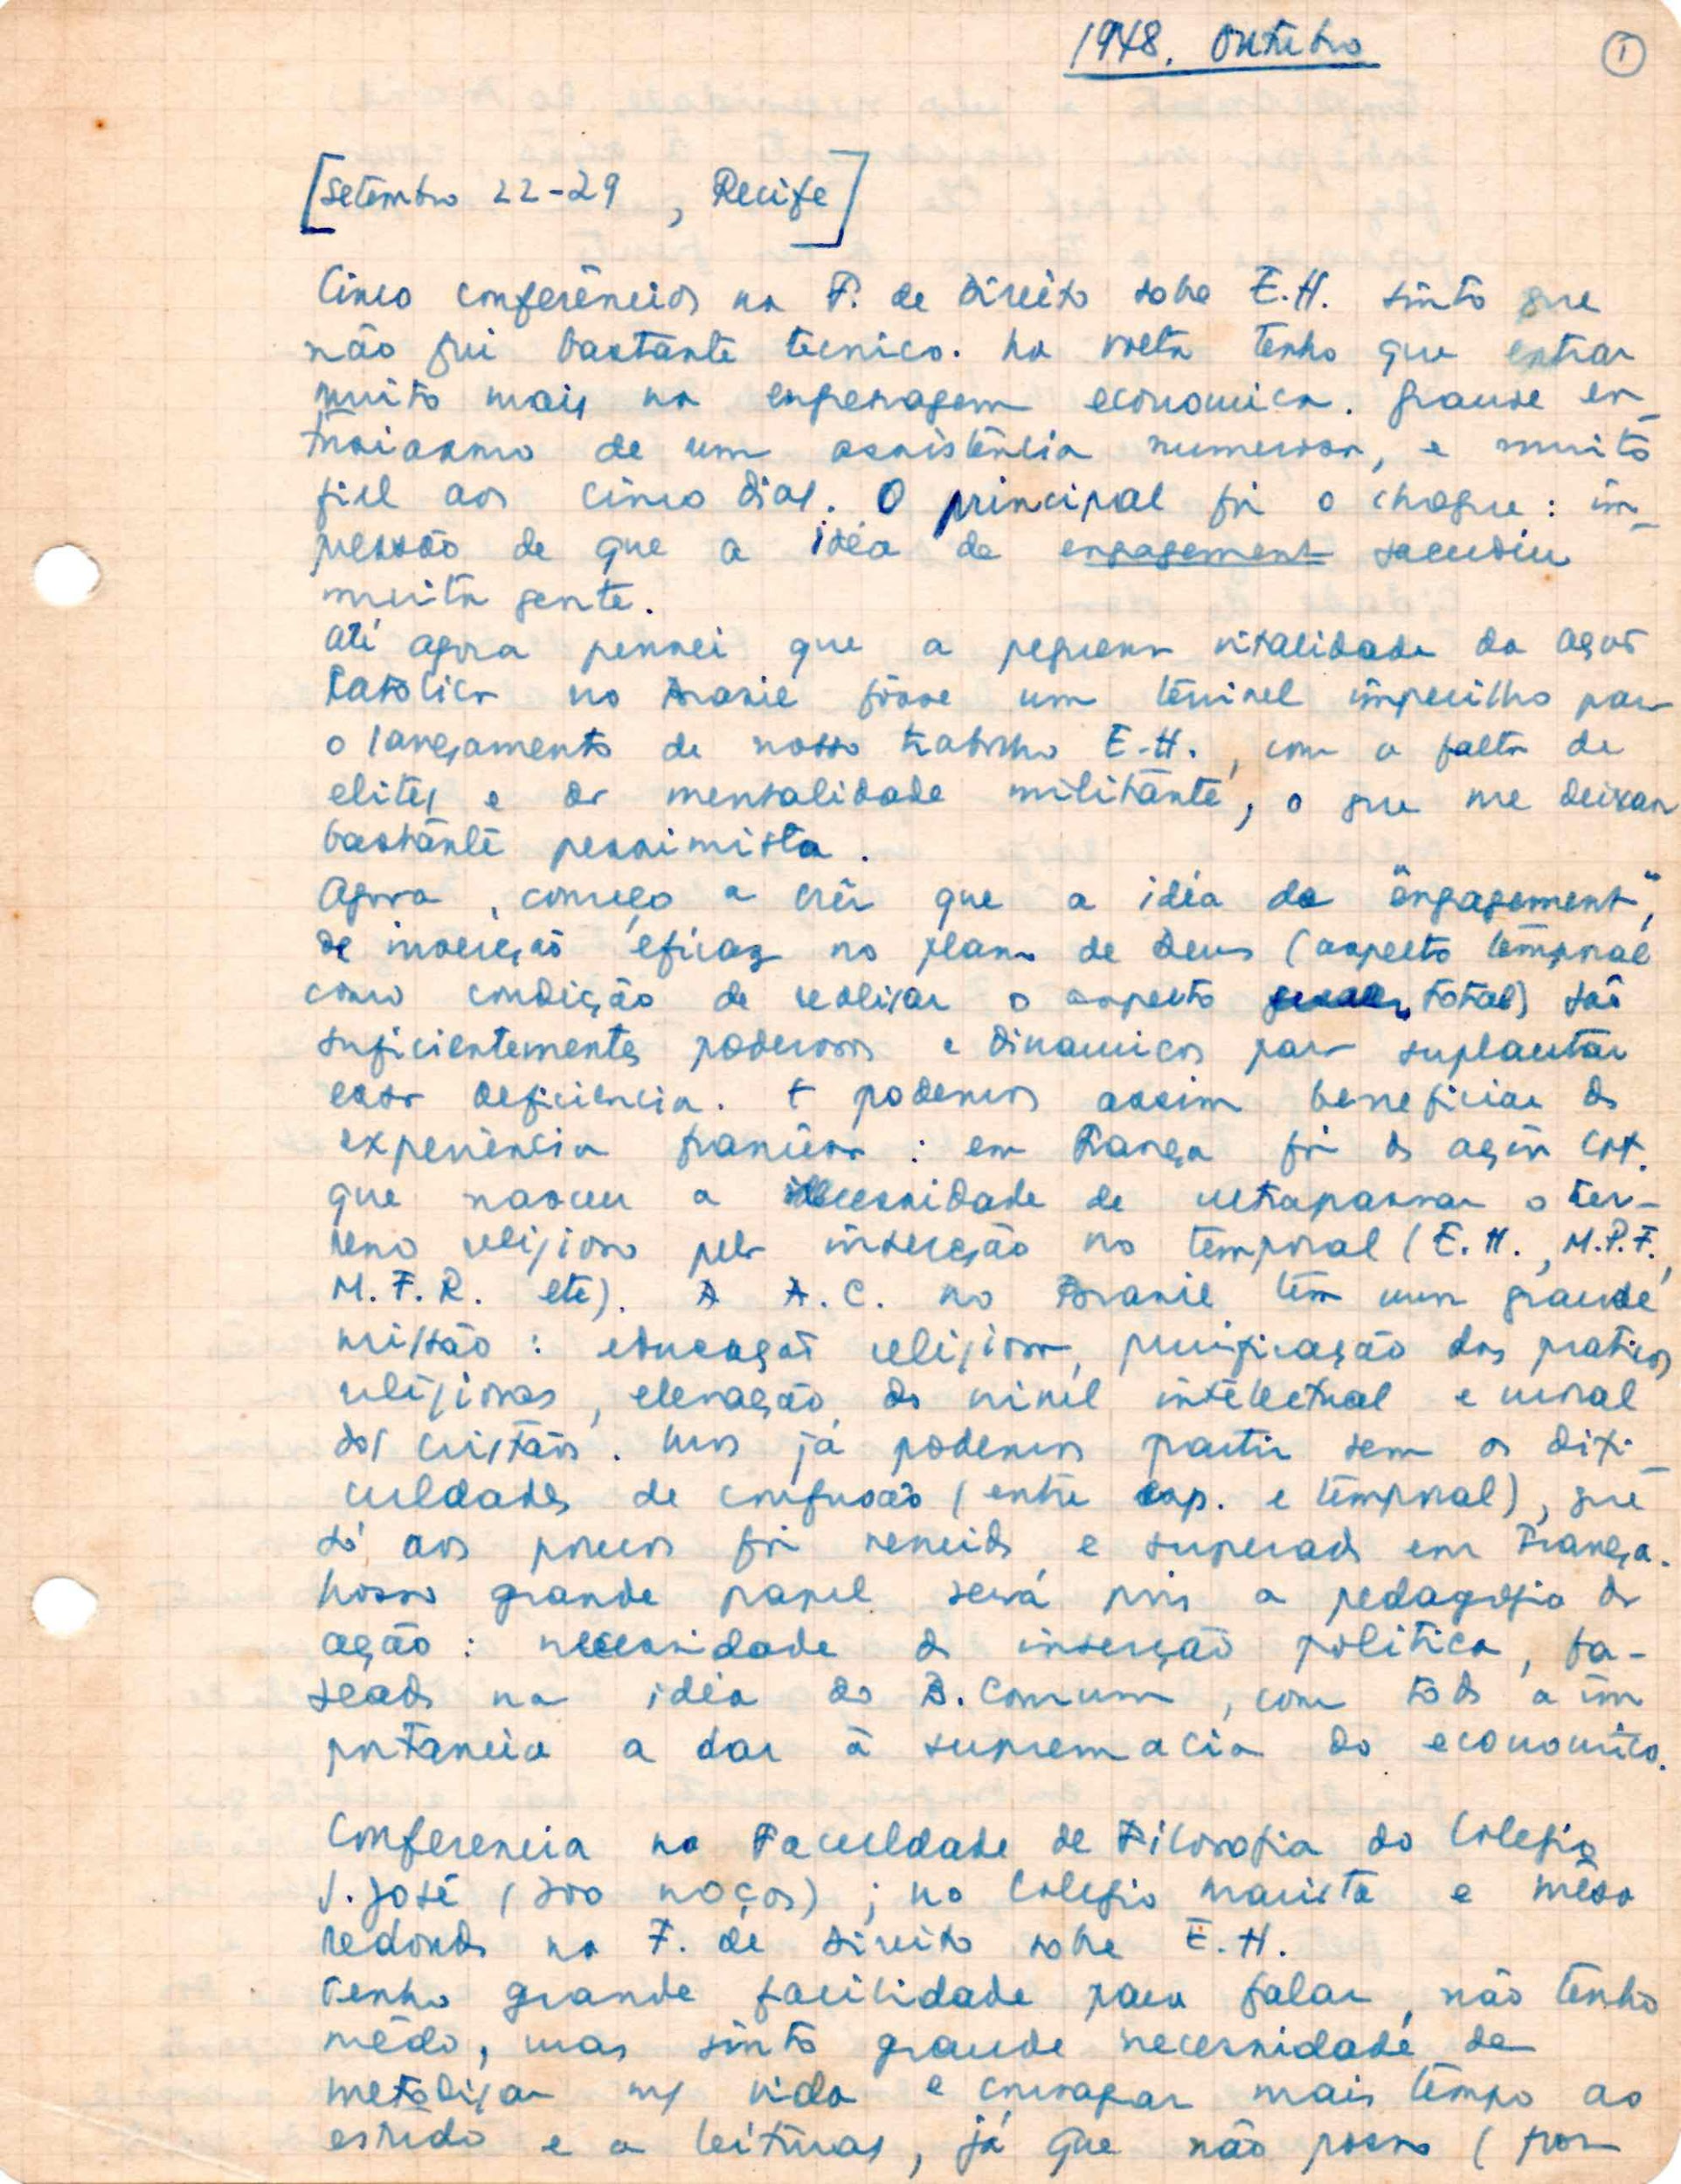 1948. Outubro
1
[Setembro 22-29, Recife]
Cinco conferências na F. de Direito sobre E.H. Sinto que
não fui bastante tecnico. Na volta tenho que entrar
muito mais na engrenagem economica. Grande en-
tusiasmo de um assistência numerosa, e muito
fiel aos cinco dias. O principal foi o choque: im-
pressão de que a idéa de engagement sacudiu
muita gente.
Até agora pensei que a pequena vitalidade da Ação
Catolica no Brasil fôsse um terrivel impecilho para
o lançamento de nosso trabalho E.H., com a falta de
elites e de mentalidade militante, o que me deixava
bastante pessimista.
Agora, começo a crêr que a idéa de "engagement",
de inserção eficaz no plano de Deus (aspecto temporal
como condição de realisar o aspecto total) são
suficientemente poderosos e dinamicos para suplantar
essa deficiencia. E podemos assim beneficiar da
experiência francêsa: em França foi da ação cat.
que nasceu a necessidade de ultrapassar o ter-
reno religioso pela inserção no temporal (E.H., M.P.F.,
M.F.R. etc). A A.C. no Brasil têm uma grande
missão: educação religiosa, purificação das praticas
religiosas, elevação do nivel intelectual e moral
dos cristãos. Mas já podemos partir sem as difi-
culdades de confusão (entre esp. e temporal), que
só aos poucos foi vencida e superada em França.
Nosso grande papel será pois a pedagogia da
ação: necessidade da inserção politica, ba-
seada na idéa do B. Comum, com toda a im
portancia a dar à supremacia do economico.
Conferencia na Faculdade de Filosofia do Colegio
S. José (300 moças); no Colegio Marista e mêsa
redonda na F. de Direito sobre E.H.
Tenho grande facilidade para falar, não tenho
mêdo, mas sinto grande necessidade de
metodisar m/ vida e consagrar mais tempo ao
estudo e a leituras, já que não posso (por